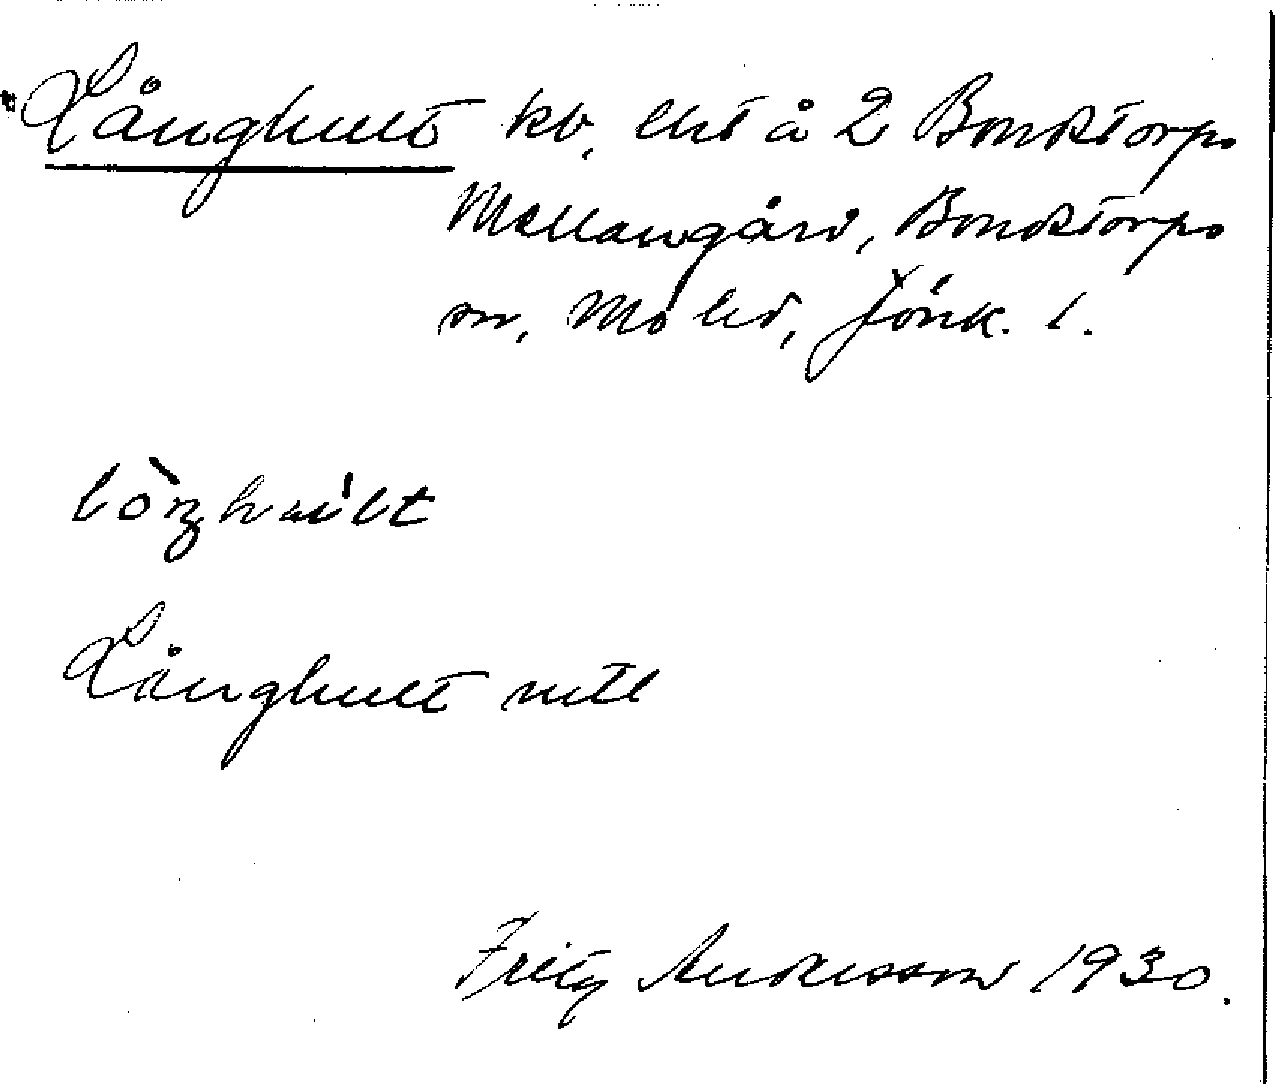 Långhult kb, lht å 2 Bondstorps
Mellangård, Bondstorps
sn, Mo hd, Jönk. l.
Långhult uttl
Fritz Andersson 1930.